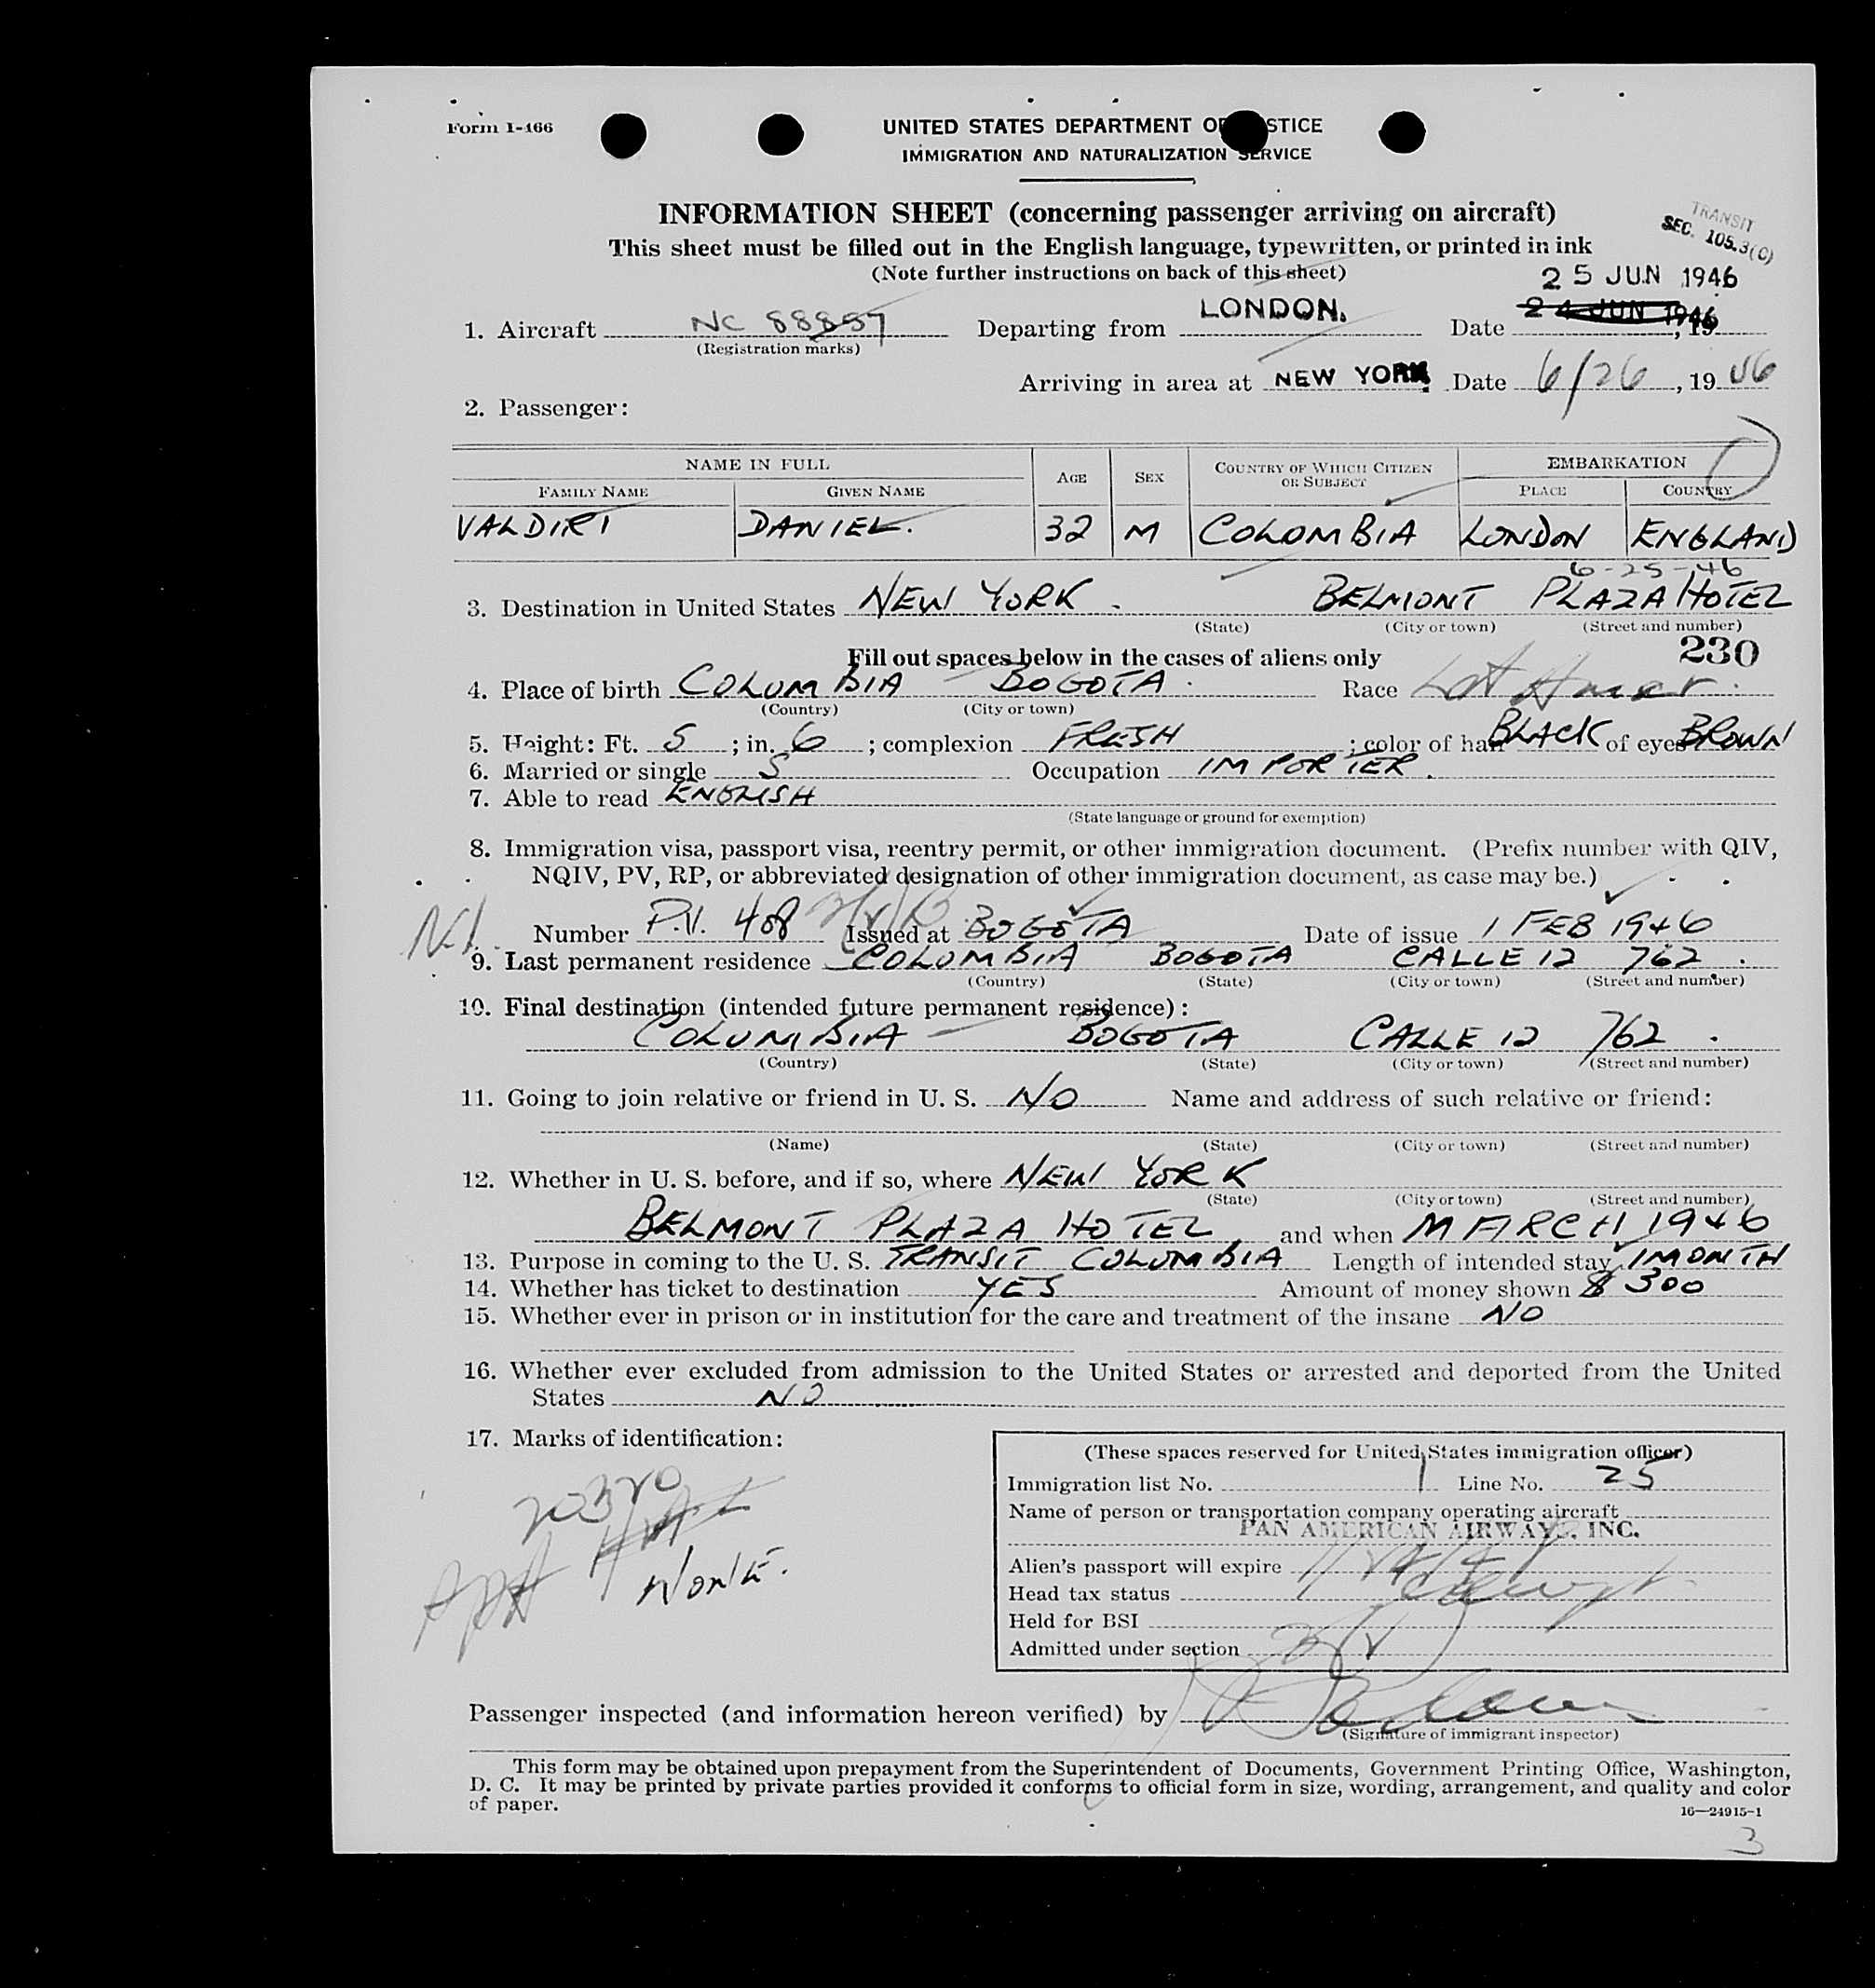 Form I-466
UNITED STATES DEPARTMENT OF JUSTICE
IMMIGRATION AND NATURALIZATION SERVICE
INFORMATION SHEET (concerning passenger arriving on aircraft)
TRANSIT
SEC. 105.3(C)
This sheet must be filled out in the English language, typewritten, or printed in ink
(Note further instructions on back of this sheet)
25 JUN 1946
1. Aircraft NC 88857 Departing from LONDON. Date 24 JUN 1946, 19
(Registration marks)
Arriving in area at NEW YORK. Date 6/26, 1946
2. Passenger:
NAME IN FULL AGE SEX COUNTRY OF WHICH CITIZEN OR SUBJECT EMBARKATION
FAMILY NAME GIVEN NAME PLACE COUNTRY
VALDIRI DANIEL. 32 M COLOMBIA LONDON ENGLAND
6-25-46
3. Destination in United States NEW YORK. BELMONT PLAZA HOTEL
(State) (City or town) (Street and number)
Fill out spaces below in the cases of aliens only 230
4. Place of birth COLUMBIA BOGOTA. Race Lat Amer.
(Country) (City or town)
5. Height: Ft. 5; in. 6; complexion FRESH; color of hair BLACK of eyes BROWN
6. Married or single S Occupation IMPORTER.
7. Able to read ENGLISH
(State language or ground for exemption)
8. Immigration visa, passport visa, reentry permit, or other immigration document. (Prefix number with QIV,
NQIV, PV, RP, or abbreviated designation of other immigration document, as case may be.)
Number P.V. 408 Issued at BOGOTA Date of issue 1 FEB 1946
9. Last permanent residence COLUMBIA BOGOTA CALLE 12 762.
(Country) (State) (City or town) (Street and number)
10. Final destination (intended future permanent residence):
COLUMBIA - BOGOTA CALLE 12 762.
(Country) (State) (City or town) (Street and number)
11. Going to join relative or friend in U. S. NO Name and address of such relative or friend:
(Name) (State) (City or town) (Street and number)
12. Whether in U. S. before, and if so, where NEW YORK
(State) (City or town) (Street and number)
BELMONT PLAZA HOTEL and when MARCH 1946
13. Purpose in coming to the U. S. TRANSIT COLUMBIA Length of intended stay 1 MONTH
14. Whether has ticket to destination YES Amount of money shown $ 300
15. Whether ever in prison or in institution for the care and treatment of the insane NO
16. Whether ever excluded from admission to the United States or arrested and deported from the United
States NO
17. Marks of identification:
NONE.
(These spaces reserved for United States immigration officer)
Immigration list No. 1 Line No. 25
Name of person or transportation company operating aircraft
PAN AMERICAN AIRWAYS, INC.
Alien's passport will expire
Head tax status
Held for BSI
Admitted under section 3(2)
Passenger inspected (and information hereon verified) by
(Signature of immigrant inspector)
This form may be obtained upon prepayment from the Superintendent of Documents, Government Printing Office, Washington,
D. C. It may be printed by private parties provided it conforms to official form in size, wording, arrangement, and quality and color
of paper.
16—24915-1
3